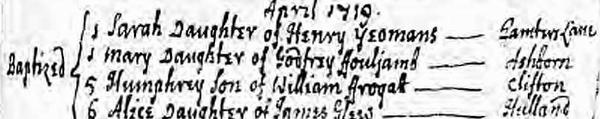 April 1719.
1 Sarah Daughter of Henry Yeomans — Gamters Lane
Baptized 1 Mary Daughter of Godfrey ffouljamb — Ashborn
5 Humphrey Son of William ffrogat — Clifton
6 Alice Daughter of James — Hulland